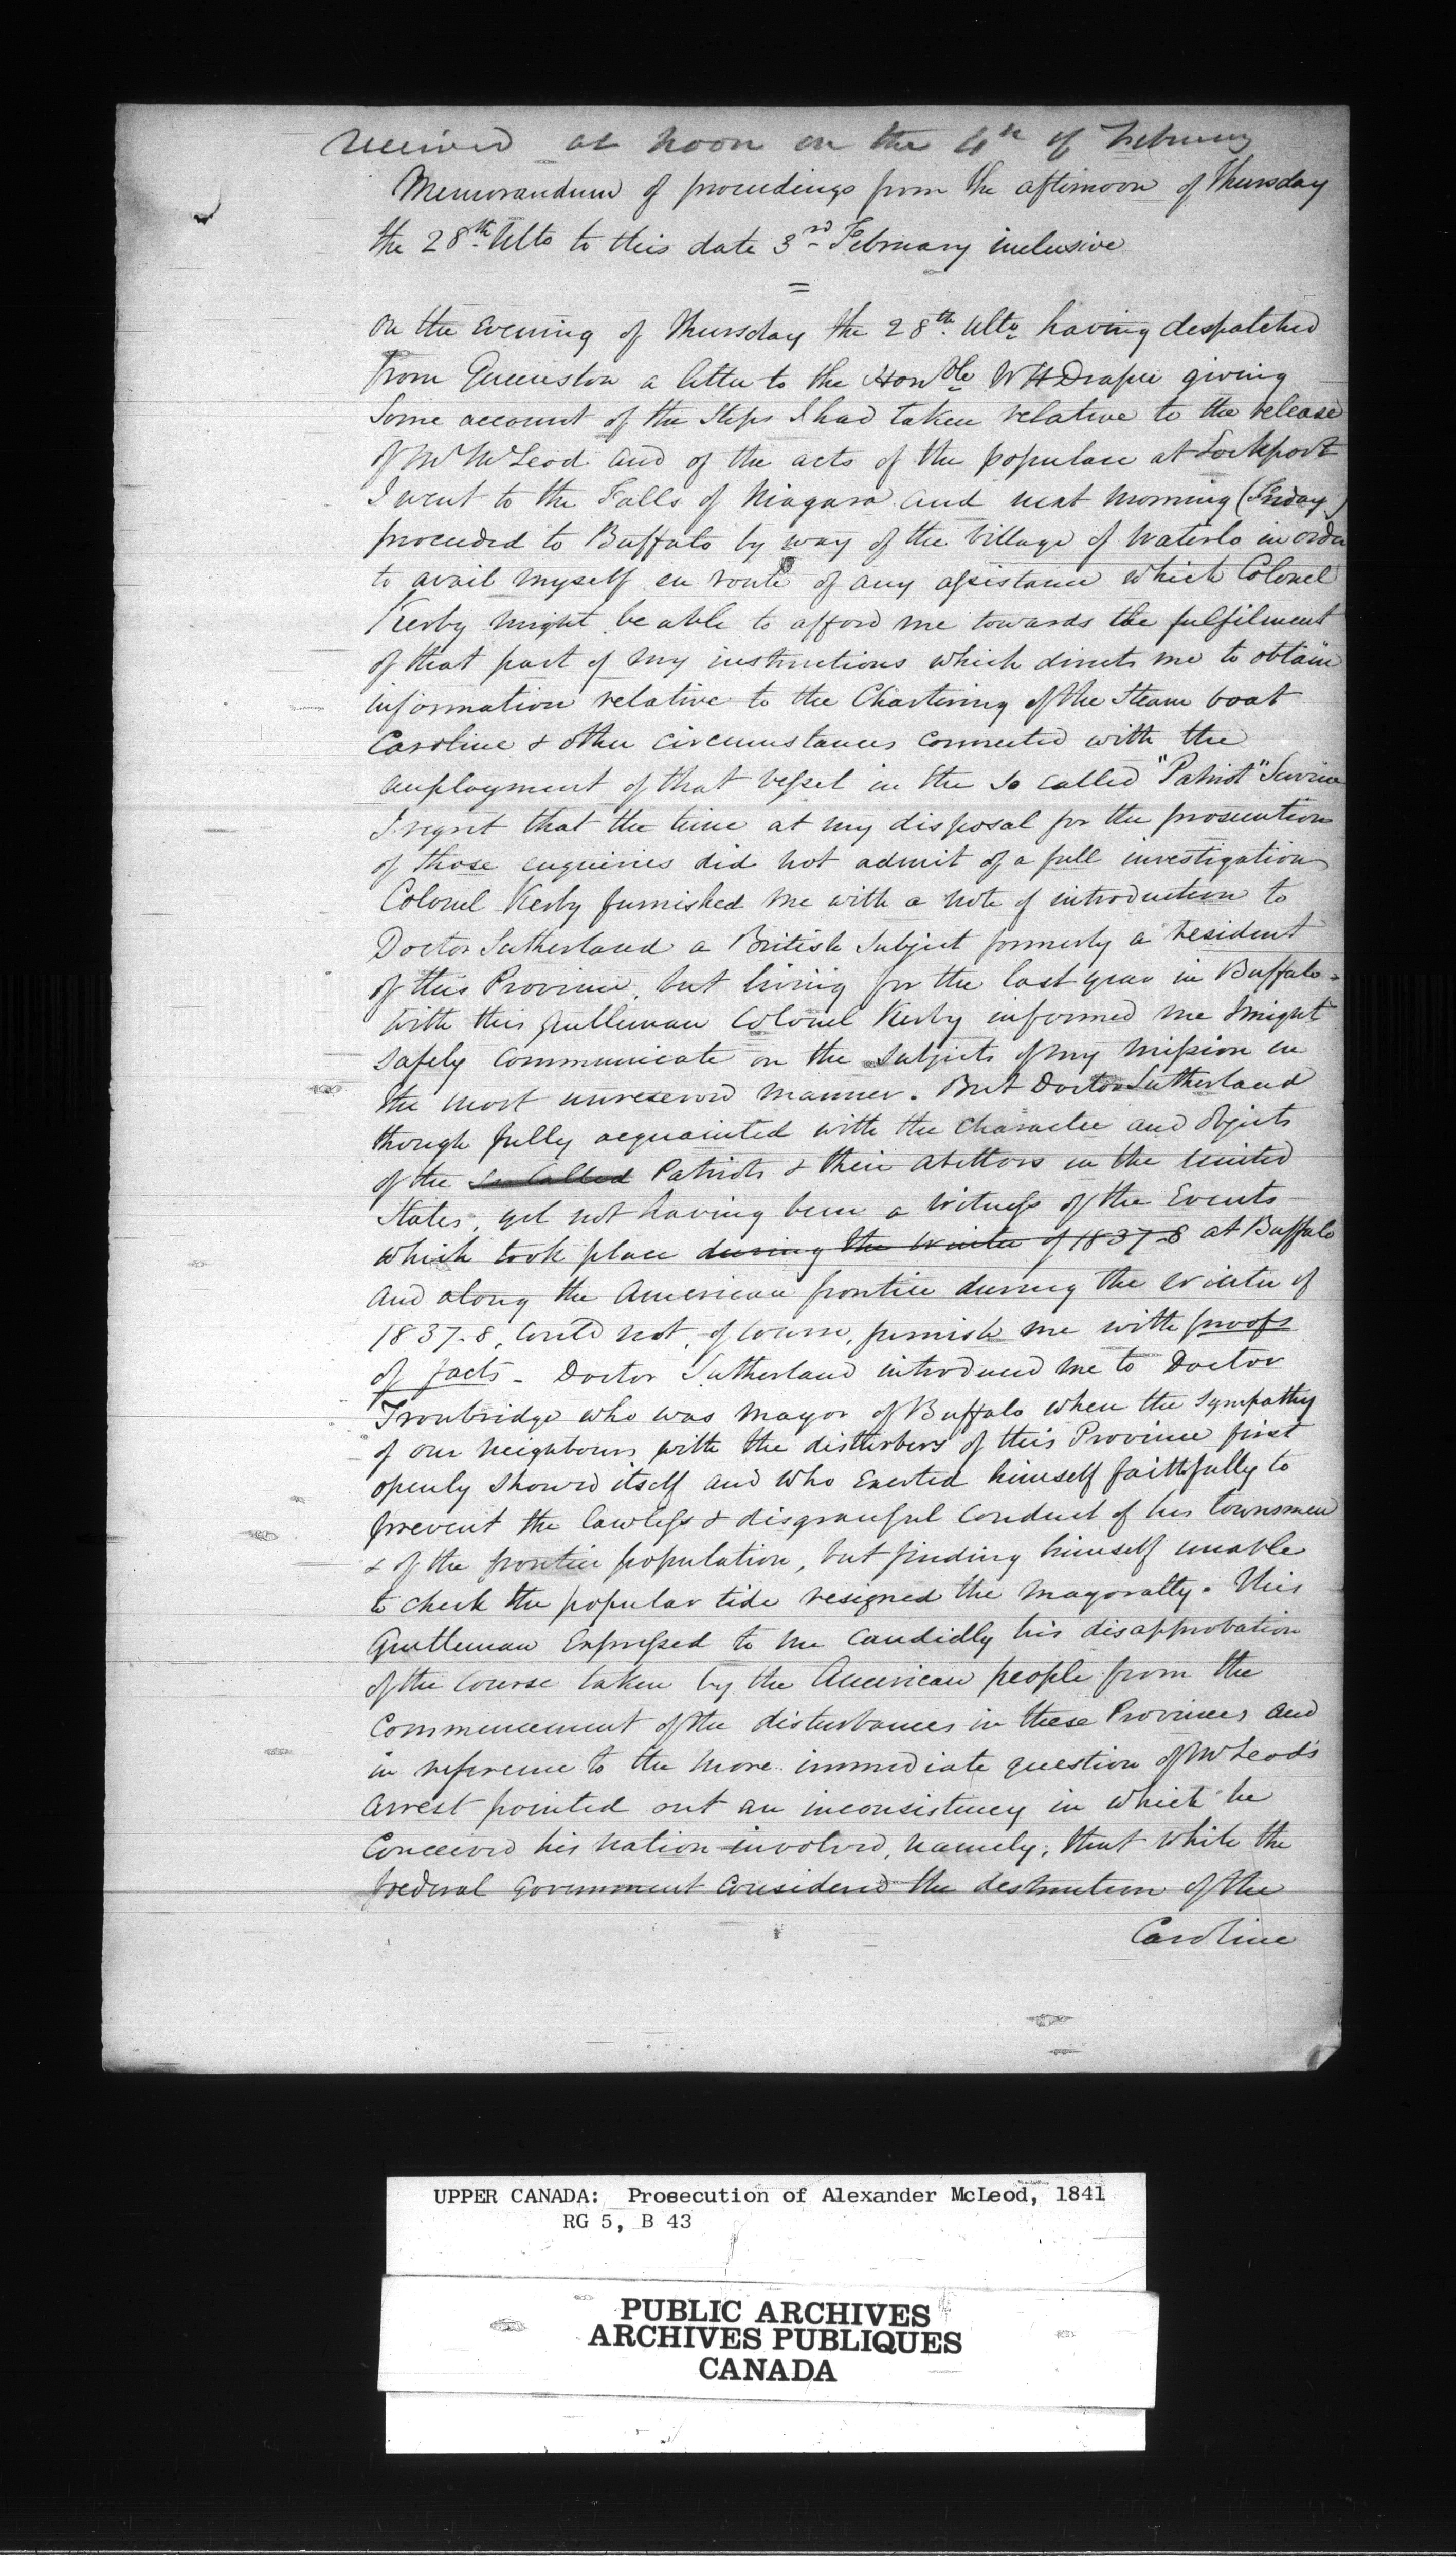 received at noon on the 4th of February
Memorandum of proceedings from the afternoon of Thursday
the 28th Ulto to this date 3rd February inclusive
=
On the Evening of Thursday the 28th. Ulto having despatched
from Queenston a letter to the Honble W H Draper giving
Some account of the Steps I had taken relative to the release
of Mr McLeod and of the acts of the populace at Lockport
I went to the Falls of Niagara and next morning (Friday)
proceeded to Buffalo by way of the Village of Waterlo in order
to avail myself en route of any assistance which Colonel
Kerby might be able to afford me towards the fulfilment
of that part of my instructions which directs me to obtain
information relative to the Chartering of the Steam boat
Caroline & other circumstances connected with the
employment of that vessel in the so called "Patriot" Service
I regret that the time at my disposal for the prosecution
of those enquiries did not admit of a full investigation
Colonel Kerby furnished me with a note of introduction to
Doctor Sutherland a British Subject formerly a resident
of this Province, but living for the last year in Buffalo -
with this gentleman Colonel Kerby informed me I might
safely communicate on the subjects of my mission in
the most unreserved manner. But Doctor Sutherland
though fully acquainted with the character and objects
of the so called Patriots & their abettors in the United
States, yet not having been a witness of the Events
which took place during the winter of 1837-8 at Buffalo
and along the American frontier during the winter of
1837-8, could not, of course, furnish me with proofs
of facts - Doctor Sutherland introduced me to Doctor
Trowbridge who was Mayor of Buffalo when the sympathy
of our neighbours with the disturbers of this Province first
openly showed itself and who exerted himself faithfully to
prevent the lawless & disgraceful conduct of his townsmen
& of the frontier population, but finding himself unable
to check the popular tide resigned the mayoralty. This
gentleman expressed to me candidly his disapprobation
of the course taken by the American people from the
commencement of the disturbances in these Provinces and
in reference to the more immediate question of McLeod's
arrest pointed out an inconsistency in which he
conceived his nation involved, namely; that while the
foederal government considered the destruction of the
Caroline
UPPER CANADA: Prosecution of Alexander McLeod, 1841
RG 5, B 43
PUBLIC ARCHIVES
ARCHIVES PUBLIQUES
CANADA